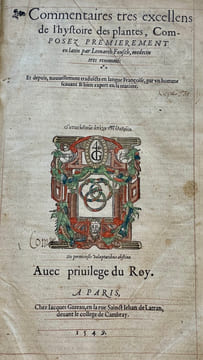 Commentaires tres excellens
de l'hystoire des plantes, Com-
POSEZ PREMIEREMENT
en latin par Leonarth Fousch, medecin
tres renommé:
Et depuis, nouuellement traduictz en langue Françoise, par vn homme
scauant & bien expert en la matiere.
Auec priuilege du Roy.
A PARIS,
Chez Iacques Gazeau, en la rue Sainct Iehan de Latran,
deuant le college de Cambray.
1549.